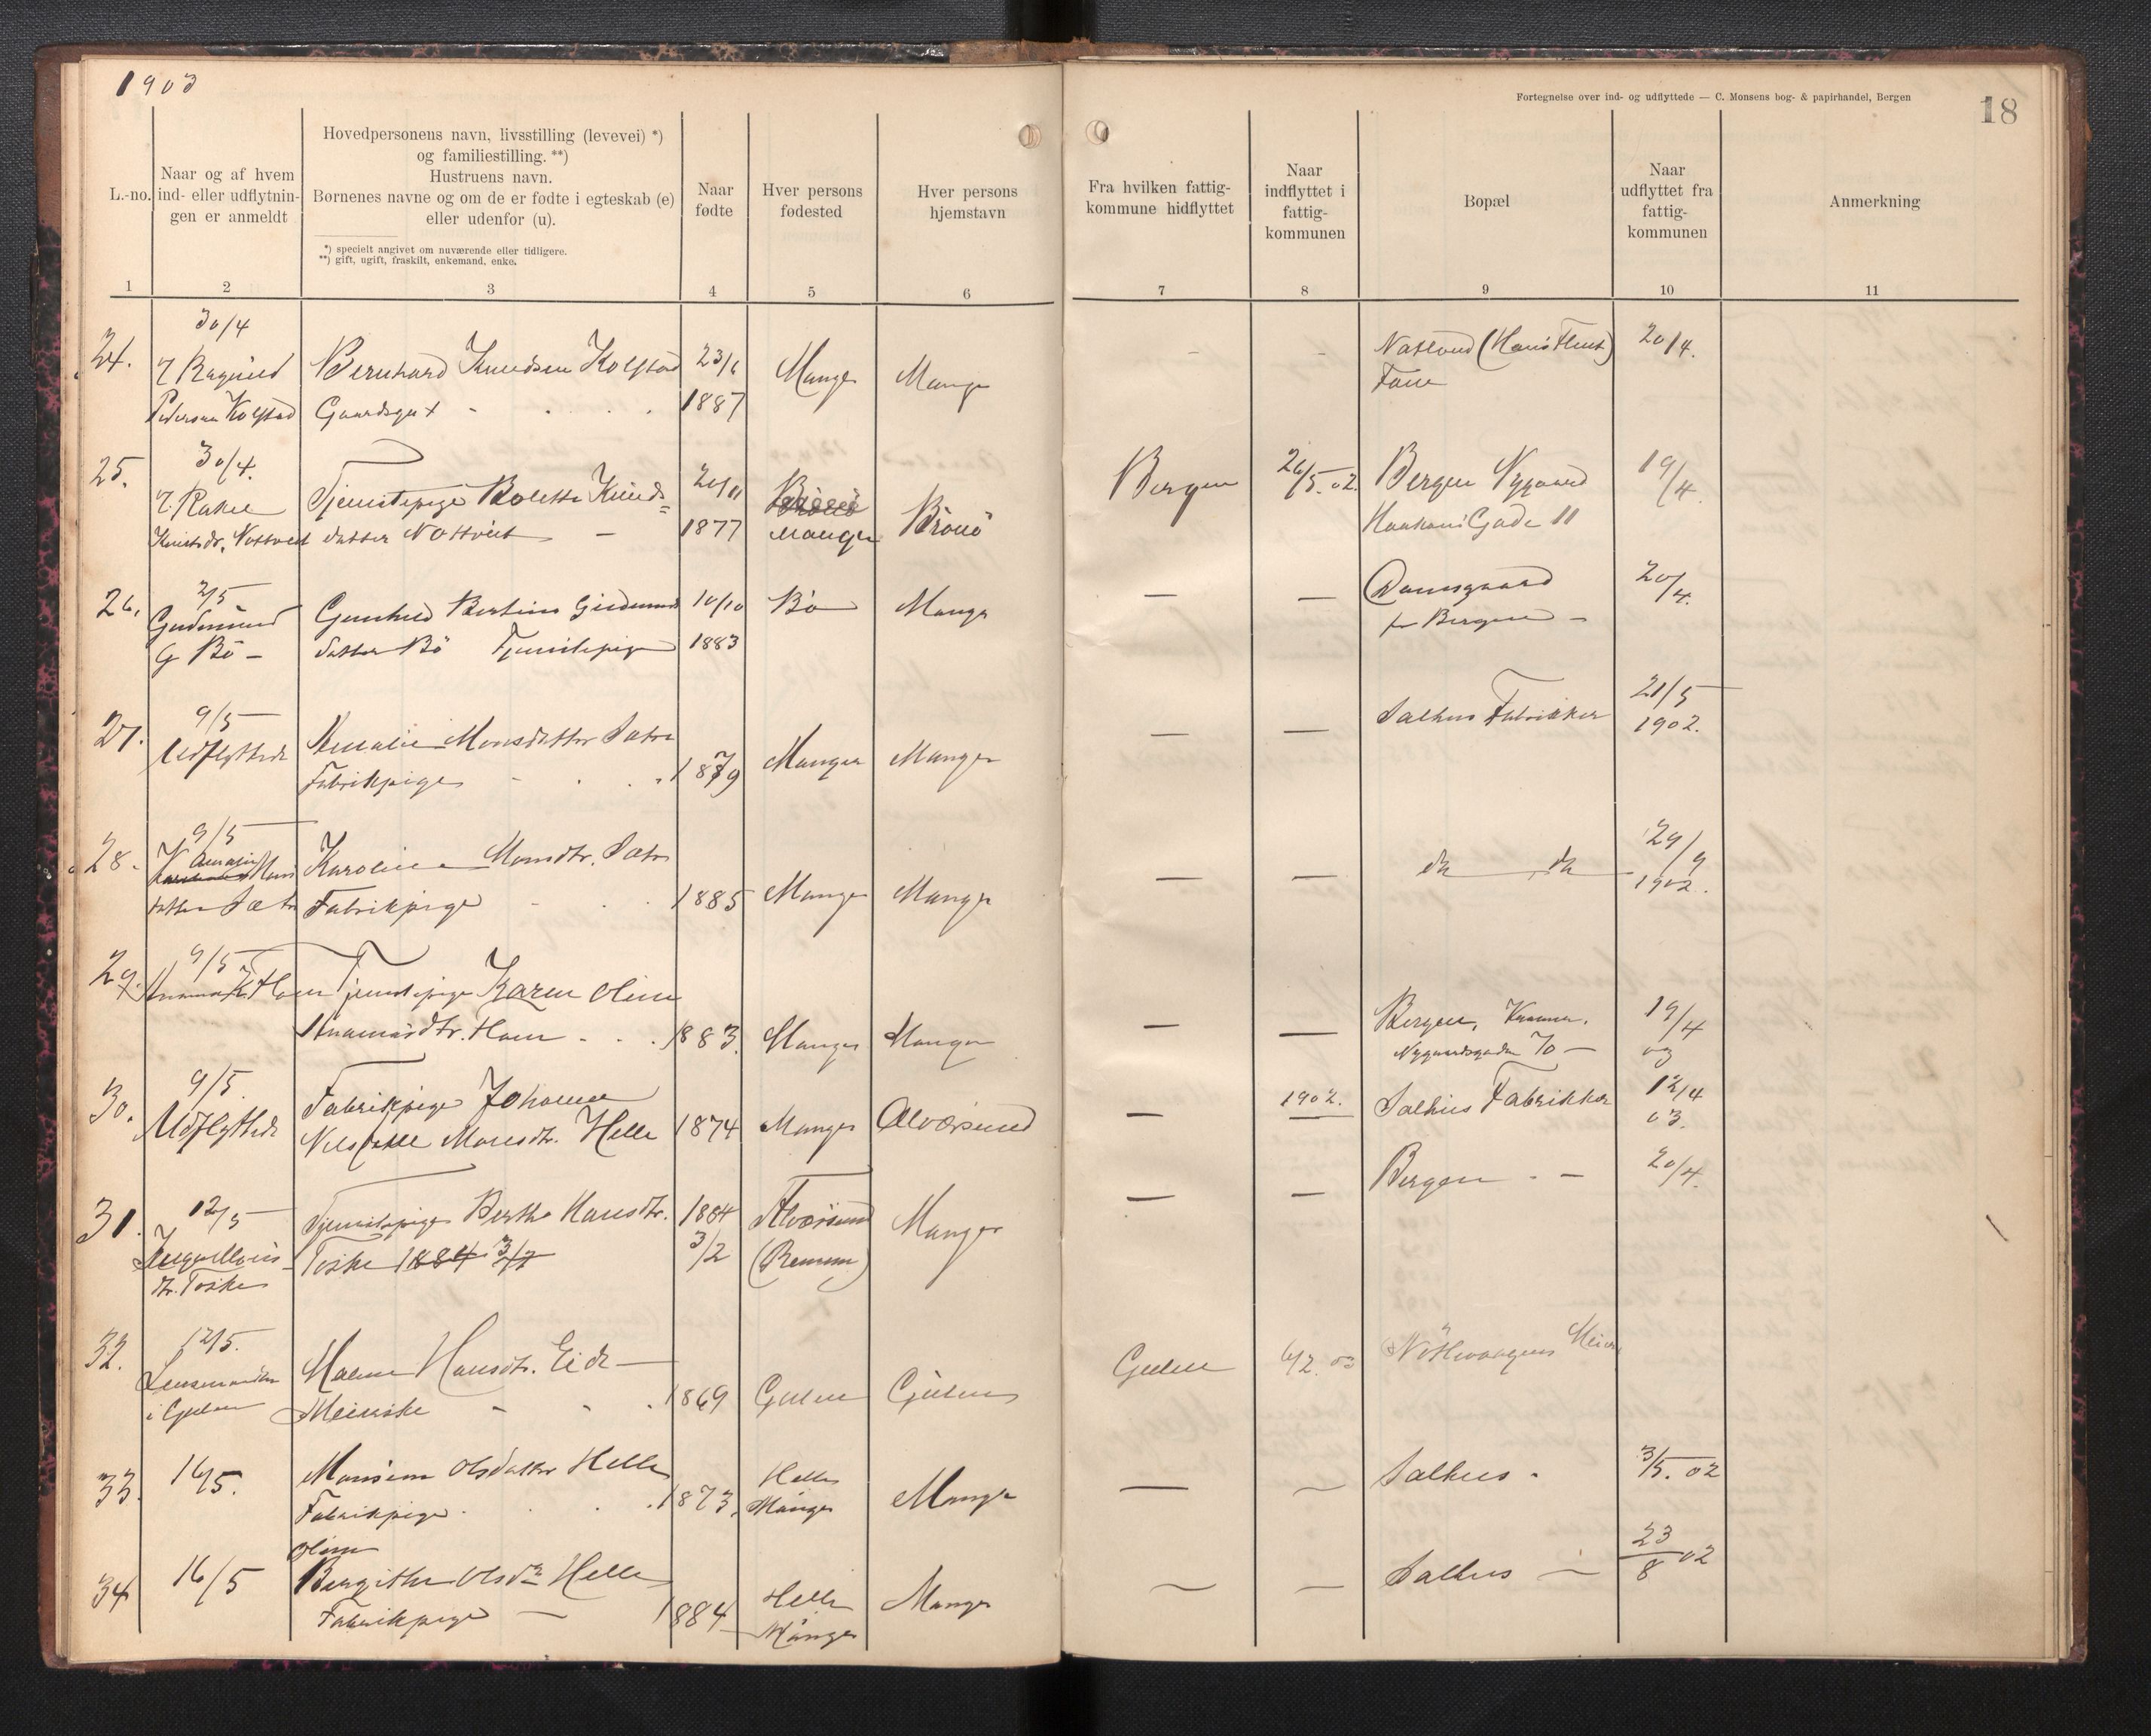 1903
Fortegnelse over ind- og udflyttede — C. Monsens bog- & papirhandel, Bergen
18
L.-no.
Naar og af hvem
ind- eller udflytnin-
gen er anmeldt
Hovedpersonens navn, livsstilling (levevei) *)
og familiestilling. **)
Hustruens navn.
Børnenes navne og om de er fødte i egteskab (e)
eller udenfor (u).
*) specielt angivet om nuværende eller tidligere.
**) gift, ugift, fraskilt, enkemand, enke.
Naar
fødte
Hver persons
fødested
Hver persons
hjemstavn
Fra hvilken fattig-
kommune hidflyttet
Naar
indflyttet i
fattig-
kommunen
Bopæl
Naar
udflyttet fra
fattig-
kommunen
Anmerkning
1 2 3 4 5 6 7 8 9 10 11
24.
30/4
Pedersen Kolstad
Bernhard Knudsen Kolstad
Gaardsgut
23/6
1887
Manger
Manger
Fane
20/4.
25.
30/4.
Knutsdr. Nottveit
Tjenstepige Bolette Knuds=
datter Nottveit —
20/11
1877
Manger
Bergen
26/5.02.
Bergen Nygaard
Haakons Gade 11
19/4
26.
2/5
Gudmund
G Bö —
Gunhild Bertine Gudmunds
datter Bö Tjenstepige
10/10
1883
Bö
Manger
—
—
Damsgaard
pr Bergen —
20/4.
27.
9/5
Udflyttede
Amalie Monsdatter Sætre
Fabrikpige
1879
Manger
Manger
—
—
Salhus Fabrikker
21/5
1902.
28.
9/5
datter Sætre
Karoline Monsdtr. Sætre
Fabrikpige
1885
Manger
Manger
—
—
do do
29/9
1902.
29.
9/5
Tjenstepige Karen Oline
1883.
Manger
Manger
—
—
Bergen,
Nygaardsgaden 70 —
19/4
03
30.
9/5.
Udflyttede
Fabrikpige Johanne
Monsdtr. Helle
1874
Manger
Alversund
—
1902.
Salhus Fabrikker
12/4
03.
31.
12/5
dtr. Toske
Tjenstepige Berthe Hansdtr.
Toske 1884 3/2
1884
3/2
Alversund
Manger
—
—
Bergen —
20/4.
32.
12/5.
Lensmanden
i Gulen
Malene Hansdtr. Eide —
Meierske
1869
Gulen
Gulens
Gulen
6/2. 03
33.
16/5.
Monsine Olsdatter Helle
Fabrikpige
1873.
Helle
Manger
Manger
—
—
Salhus.
3/5. 02
34
16/5
Oline
Bergithe Olsdr Helle
Fabrikpige —
1884
Helle
Manger
Manger
—
—
Salhus —
23/8 02